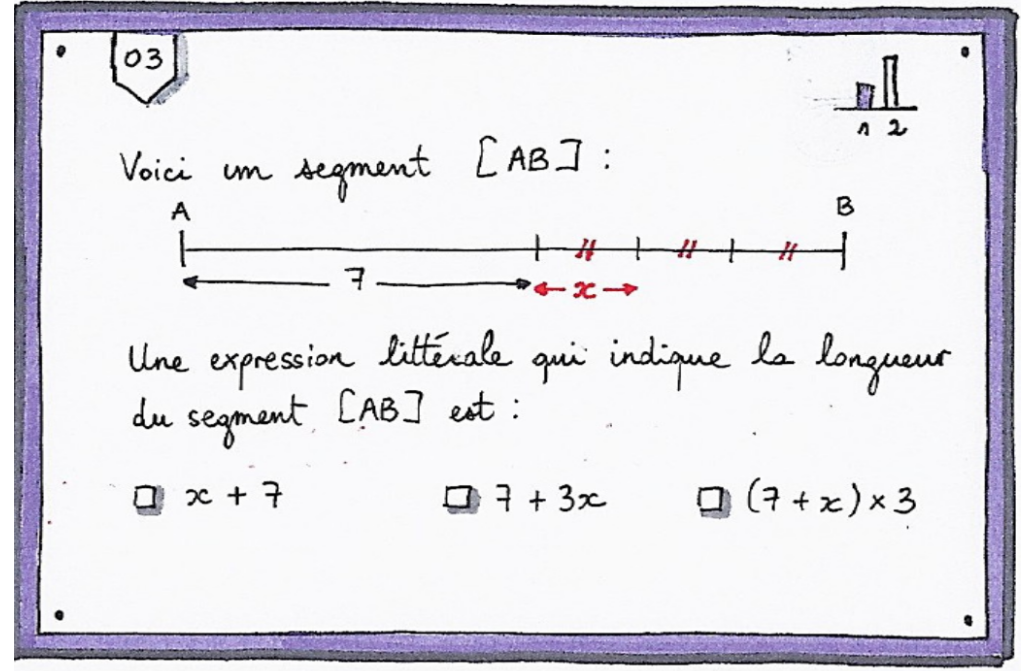 03
1 2
Voici un segment [AB] :
A B
7 x
Une expression littérale qui indique la longueur
du segment [AB] est :
□ x + 7 □ 7 + 3x □ (7 + x) × 3